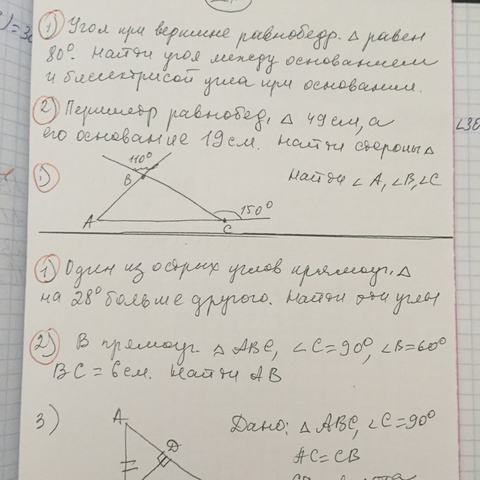 1) Угол при вершине равнобедр. △ равен
80°. Найти угол между основанием
и биссектрисой угла при основании.
2) Периметр равнобед. △ 49 см, а
его основание 19 см. Найти стороны △
3)
110°
B
A
C
150°
Найти ∠A, ∠B, ∠C
1) Один из острых углов прямоуг. △
на 28° больше другого. Найти эти углы
2) В прямоуг. △ ABC, ∠C=90°, ∠B=60°
BC = 6 см. Найти AB
3)
A
D
Дано: △ ABC, ∠C=90°
AC=CB